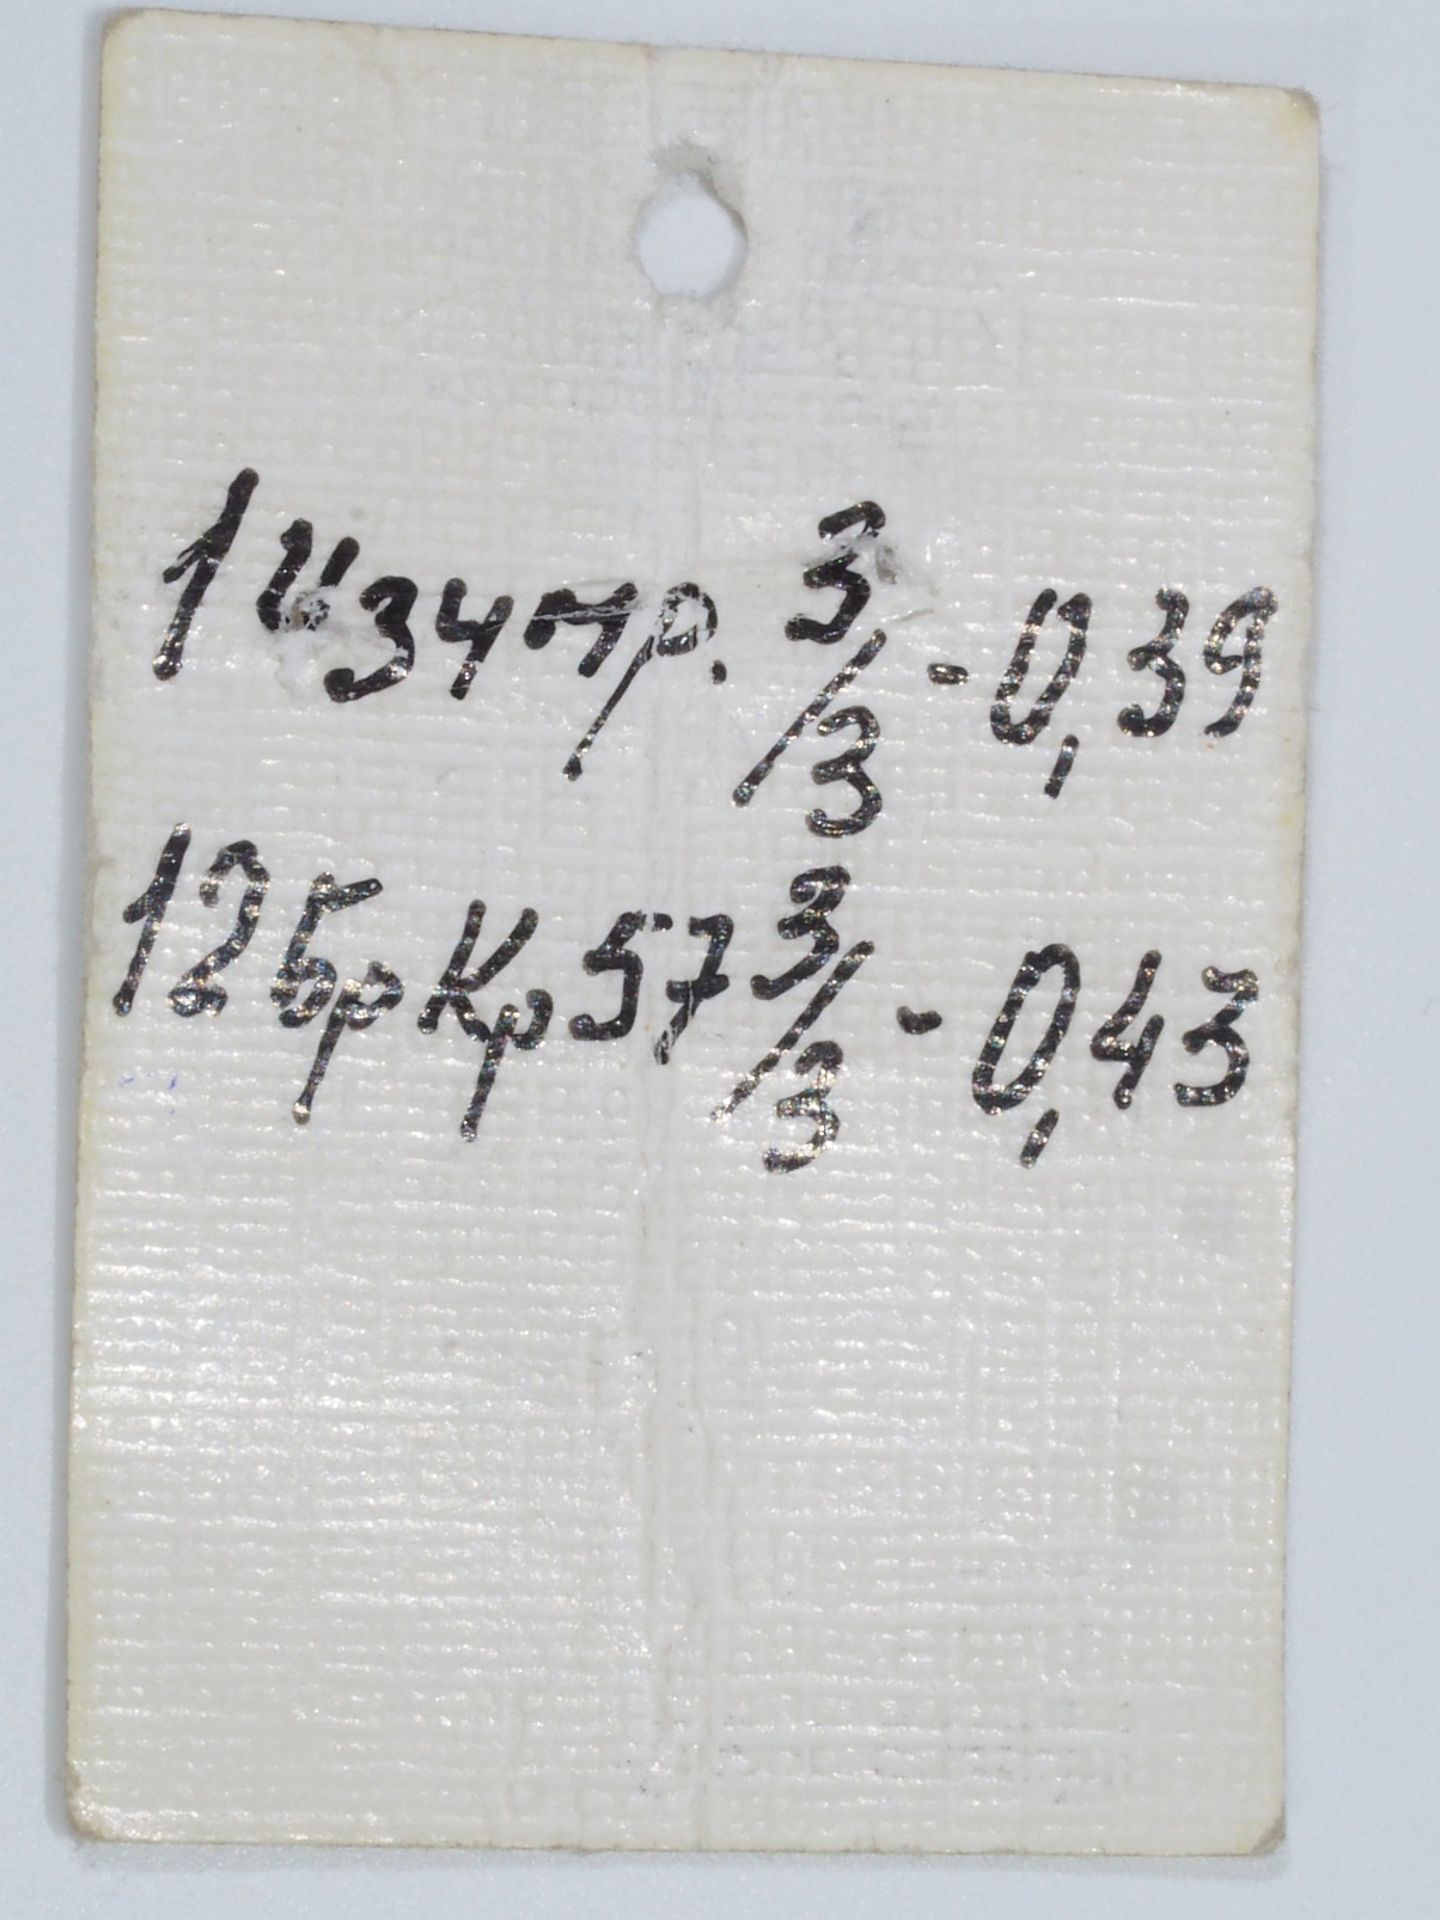 1 изумр. 3/3 - 0,39
12 бр Кр57 3/3 - 0,43